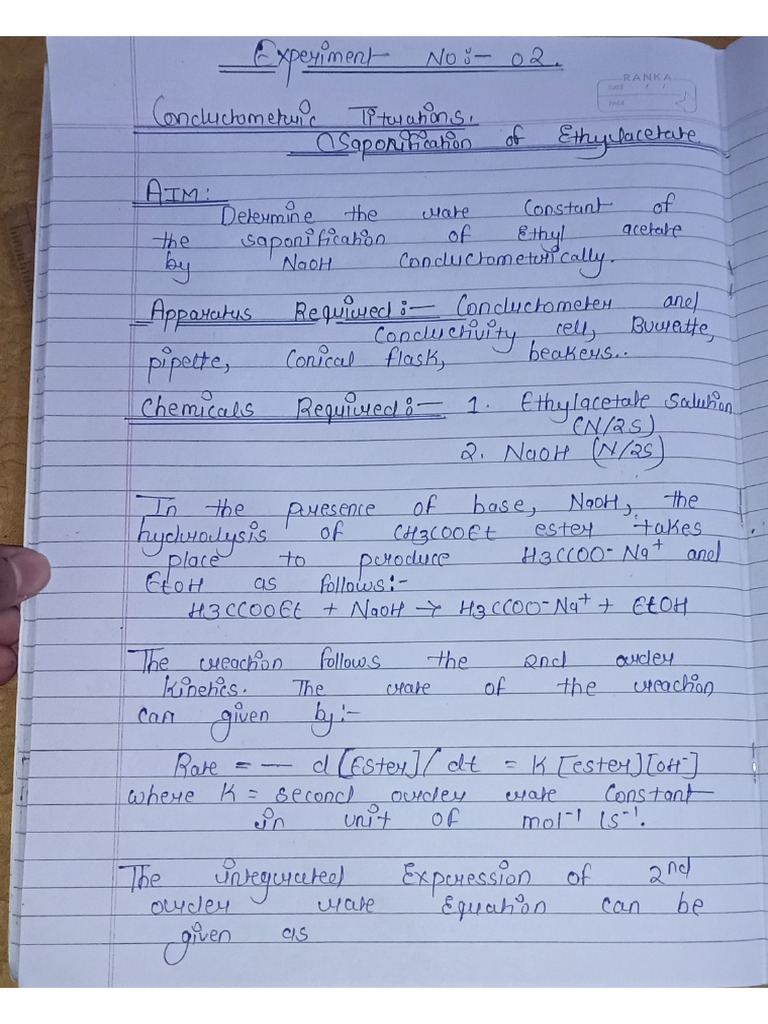 Experiment No:- 02.
RANKA
DATE / /
PAGE
Conductometric Titrations.
Saponification of Ethylacetate
AIM:
Determine the rate constant of
the saponification of Ethyl acetate
by NaOH Conductometrically.
Apparatus Required:- Conductometer and
Conductivity cell, Burette,
pipette, Conical flask, beakers..
Chemicals Required:- 1. Ethylacetate Solution
(N/25)
2. NaOH (N/25)
In the presence of base, NaOH, the
hydrolysis of CH3COOEt ester takes
place to produce H3CCOO-Na+ and
EtOH as follows:-
H3CCOOEt + NaOH → H3CCOO-Na+ + EtOH
The reaction follows the 2nd order
Kinetics. The rate of the reaction
can given by:-
Rate = - d[Ester]/dt = K[ester][OH-]
where K = second order rate constant
in unit of mol-1 ls-1.
The integrated Expression of 2nd
order rate Equation can be
given as